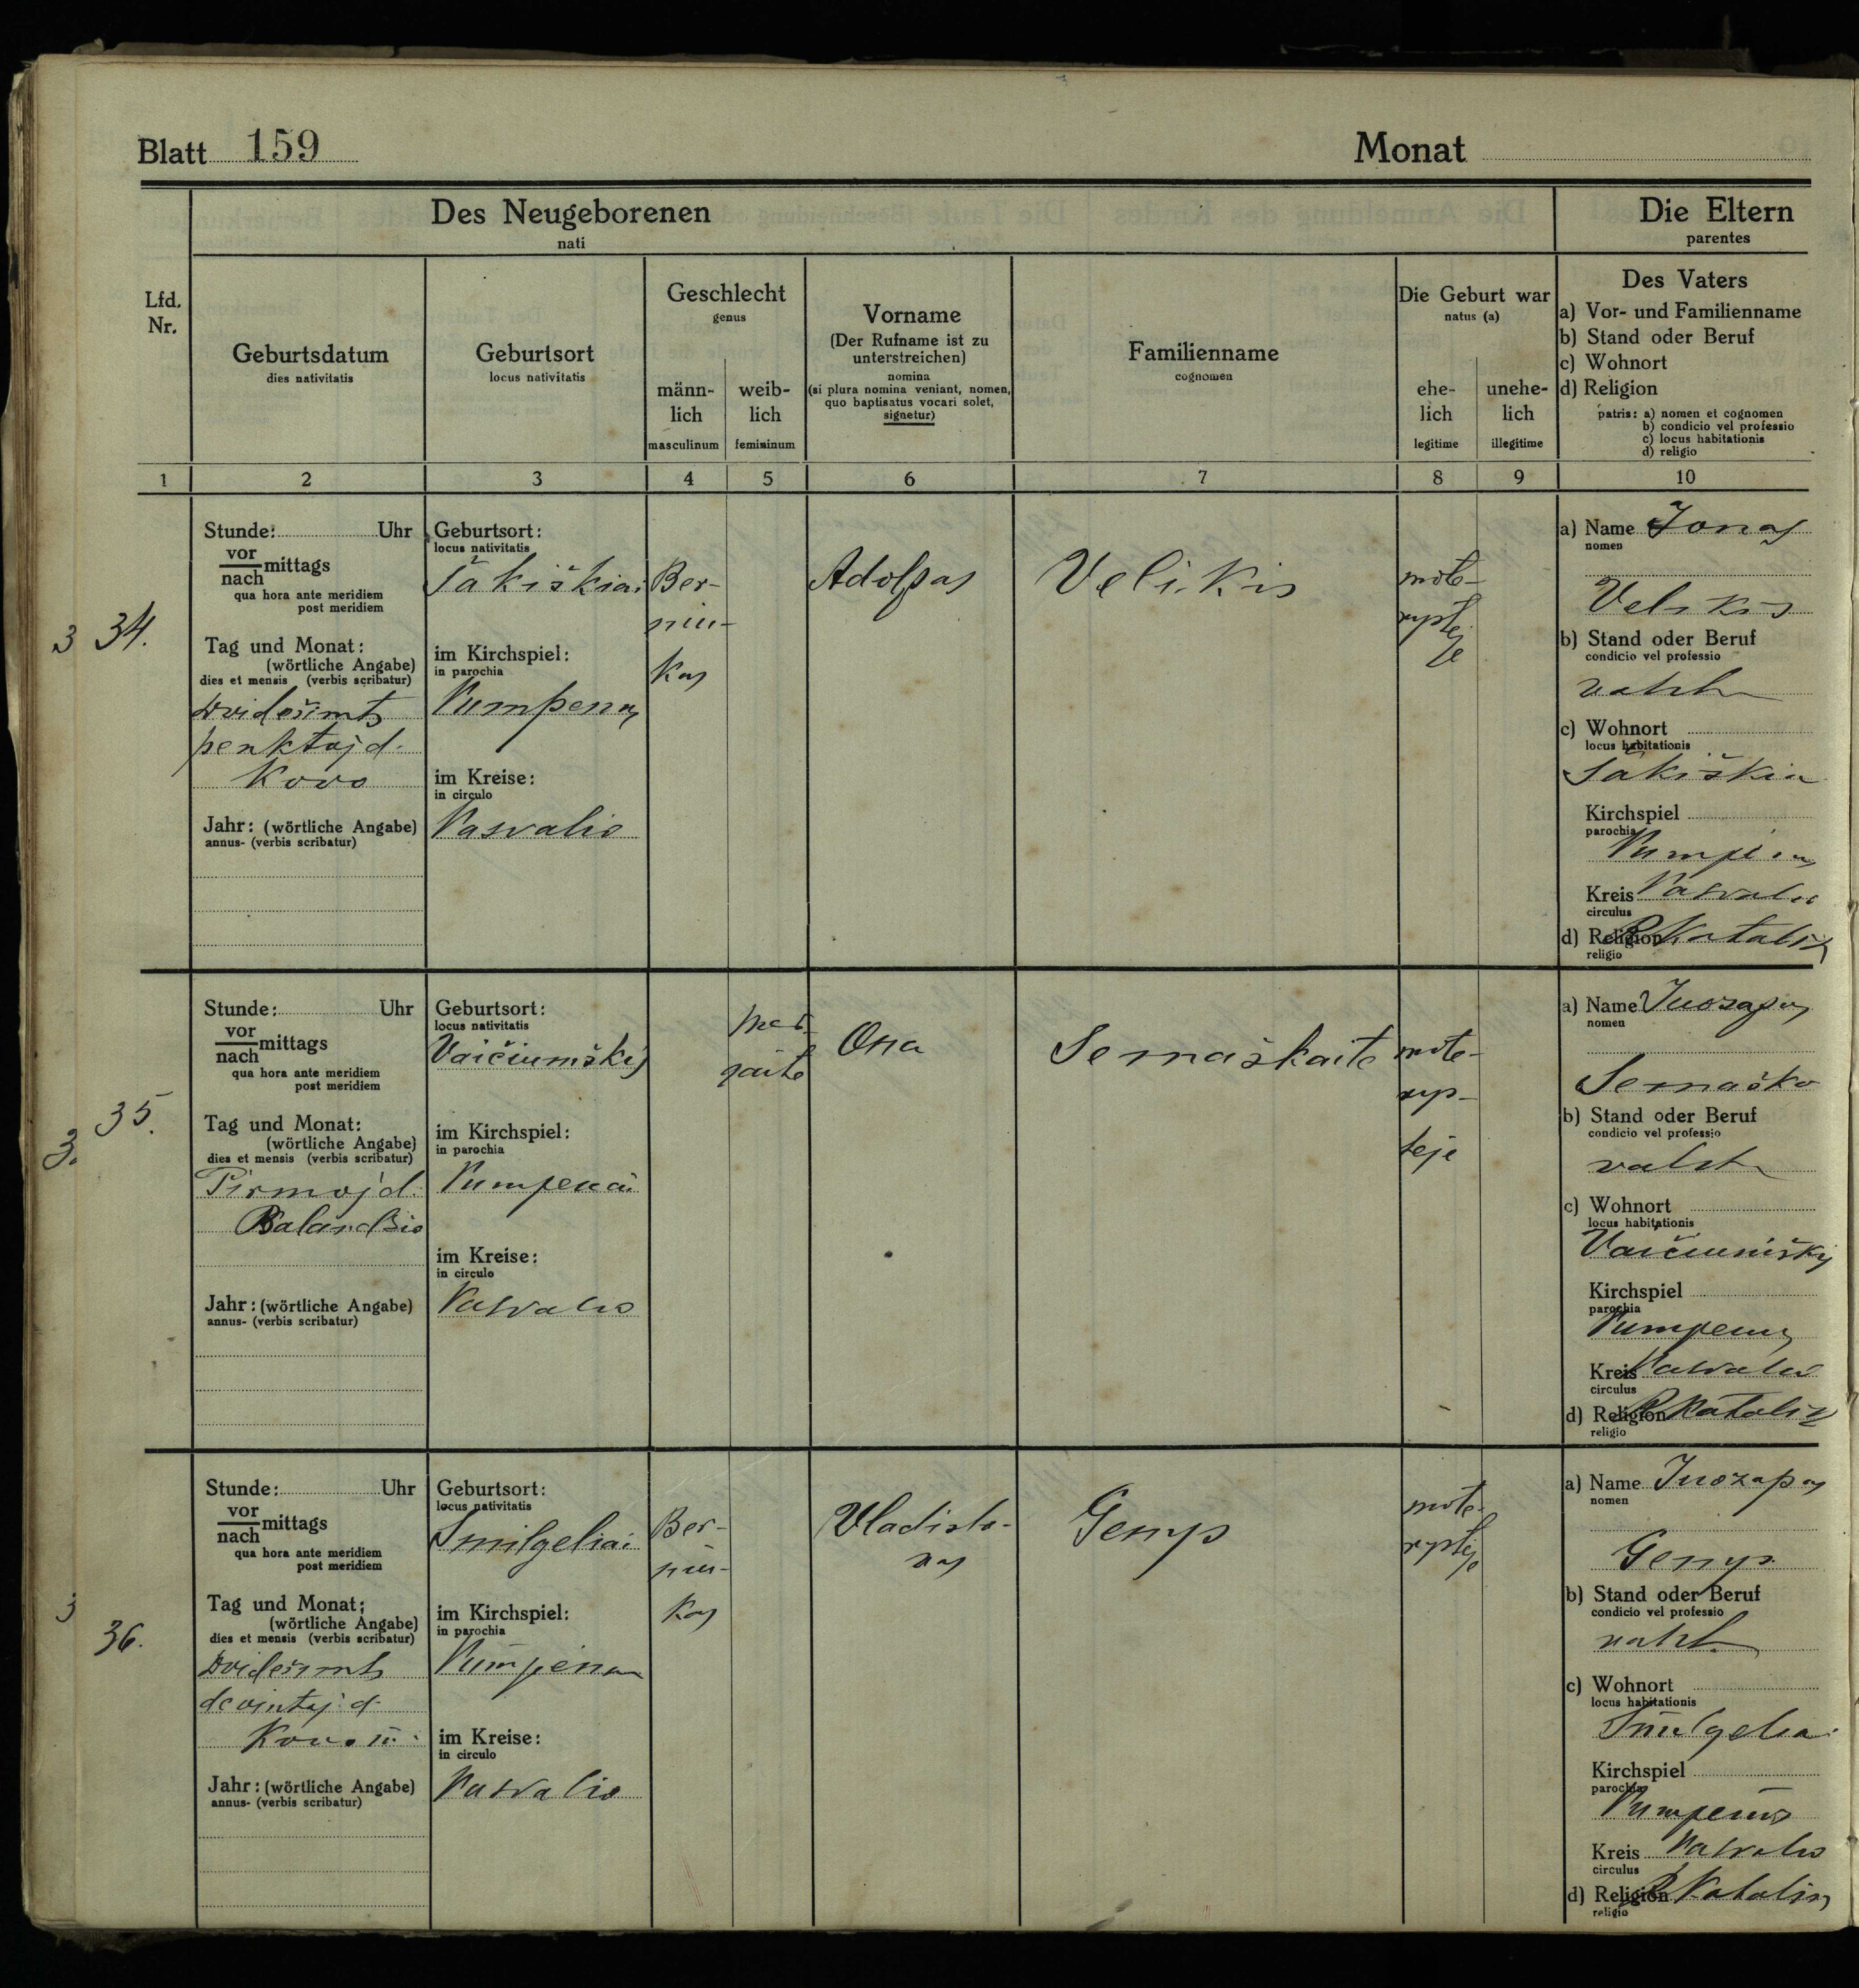 Blatt 159 Monat
Des Neugeborenen
nati
Die Eltern
parentes
Lfd. Nr.
Geburtsdatum
dies nativitatis
Geburtsort
locus nativitatis
Geschlecht
genus
männ-
lich
masculinum
weib-
lich
femininum
Vorname
(Der Rufname ist zu
unterstreichen)
nomina
(si plura nomina veniant, nomen,
quo baptisatus vocari solet,
signetur)
Familienname
cognomen
Die Geburt war
natus (a)
ehe-
lich
legitime
unehe-
lich
illegitime
Des Vaters
a) Vor- und Familienname
b) Stand oder Beruf
c) Wohnort
d) Religion
patris: a) nomen et cognomen
b) condicio vel professio
c) locus habitationis
d) religio
1 2 3 4 5 6 7 8 9 10
3 34.
Stunde: Uhr
vor
nach
mittags
qua hora ante meridiem
post meridiem
Tag und Monat:
(wörtliche Angabe)
dies et mensis (verbis scribatur)
Dvidešimts
penktoj d.
Kovo
Jahr: (wörtliche Angabe)
annus- (verbis scribatur)
Geburtsort:
locus nativitatis
Šakiškiai
im Kirchspiel:
in parochia
Pumpenai
im Kreise:
in circulo
Pasvalio
Ber-
niu-
kas
Adolfas
Velikis
mote-
rystė
je
a) Name Jonas
nomen
Velikis
b) Stand oder Beruf
condicio vel professio
c) Wohnort
locus habitationis
Šakiškia
Kirchspiel
parochia
Pumpėnai
Kreis Pasvalio
circulus
d) Religion R Katalik
religio
3. 35.
Stunde: Uhr
vor
nach
mittags
qua hora ante meridiem
post meridiem
Tag und Monat:
(wörtliche Angabe)
dies et mensis (verbis scribatur)
Pirmoj d.
Balandžio
Jahr: (wörtliche Angabe)
annus- (verbis scribatur)
Geburtsort:
locus nativitatis
Vaičiuniškį
im Kirchspiel:
in parochia
Pumpenai
im Kreise:
in circulo
Pasvalio
mer-
gaitė
Ona
Semaškaite
mote-
rys-
teje
a) Name Juozapas
nomen
Semaško
b) Stand oder Beruf
condicio vel professio
c) Wohnort
locus habitationis
Vaičiuniškį
Kirchspiel
parochia
Pumpenai
Kreis Pasvalio
circulus
d) Religion R Katalik
religio
3 36.
Stunde: Uhr
vor
nach
mittags
qua hora ante meridiem
post meridiem
Tag und Monat:
(wörtliche Angabe)
dies et mensis (verbis scribatur)
Dvidešimts
devintoj d.
Kovo
Jahr: (wörtliche Angabe)
annus- (verbis scribatur)
Geburtsort:
locus nativitatis
Smilgeliai
im Kirchspiel:
in parochia
Pumpenai
im Kreise:
in circulo
Pasvalio
Ber-
niu-
kas
Vladislo-
vas
Genys
mote-
rystėje
a) Name Juozapas
nomen
Genys
b) Stand oder Beruf
condicio vel professio
c) Wohnort
locus habitationis
Smilgeliai
Kirchspiel
parochia
Pumpenai
Kreis Pasvalio
circulus
d) Religion R Katalik
religio